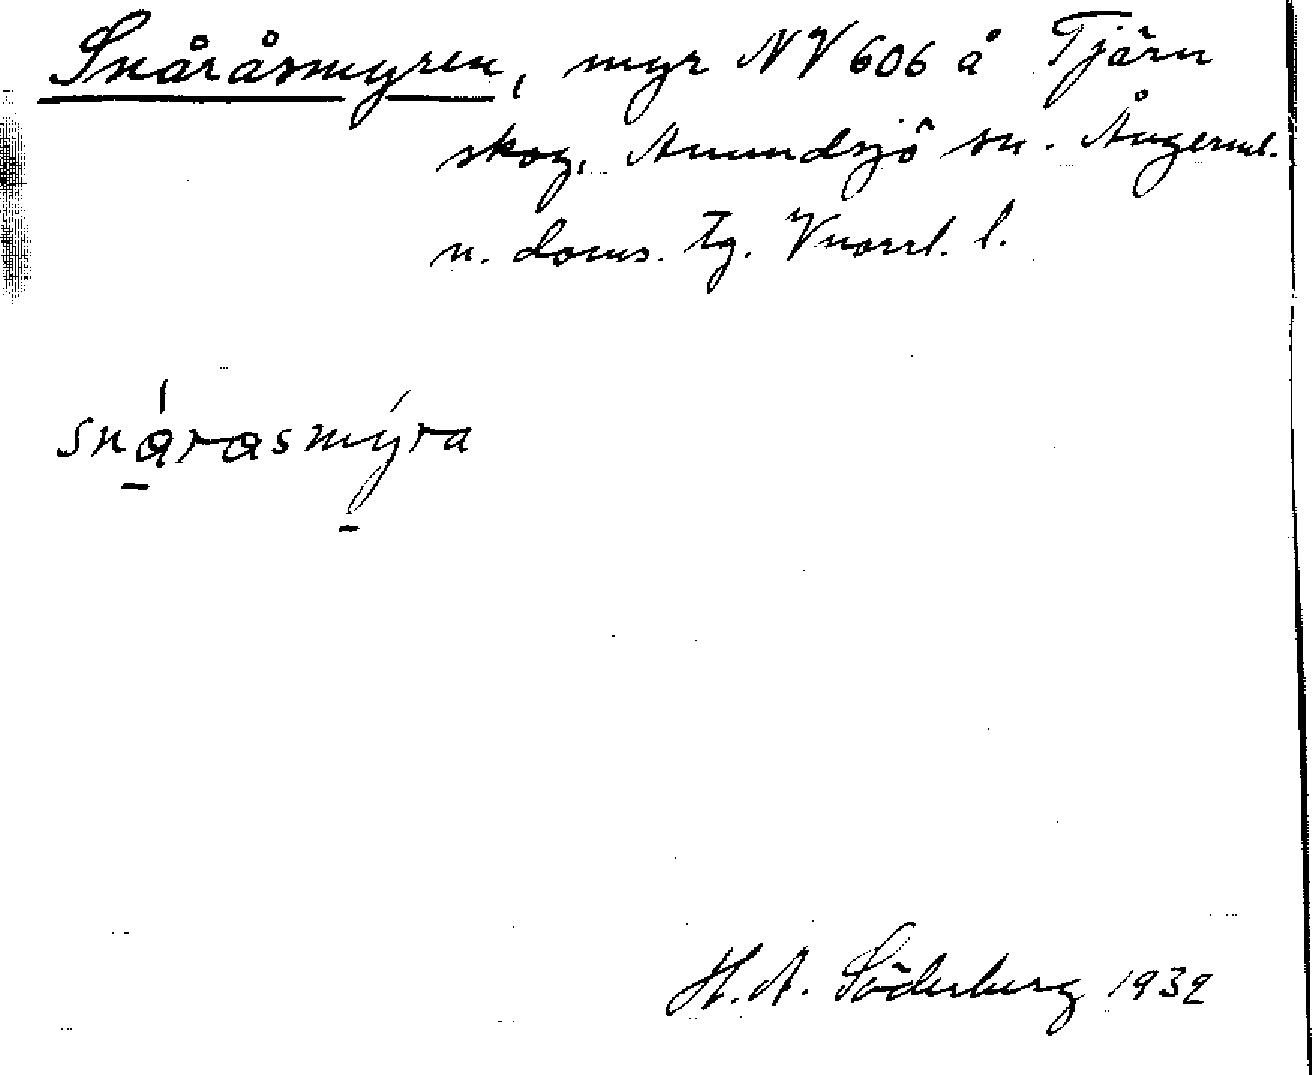 Snåråsmyren, myr NV 606 å Tjärn
skog, Anundsjö sn. Ångerml.
n. doms. tg. Vnorrl. l.
snárasmýra
H. A. Söderberg 1932